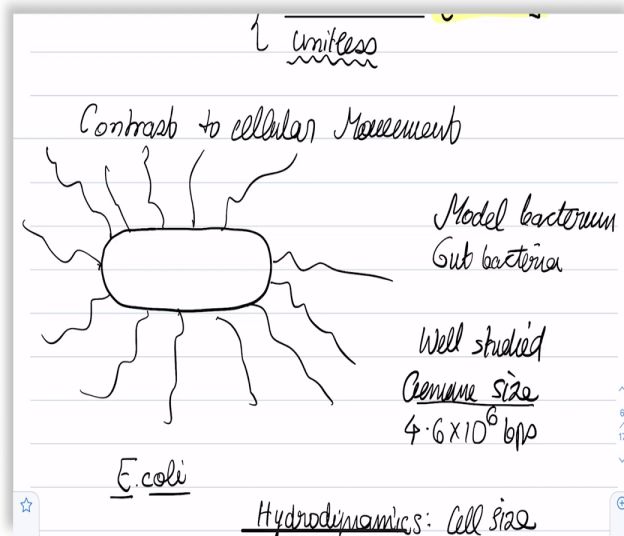 unitless
Contrast to cellular Movement
Model bacterium
Gut bacteria
Well studied
Genome size
4.6×10⁶ bps
E.coli
Hydrodynamics: Cell size